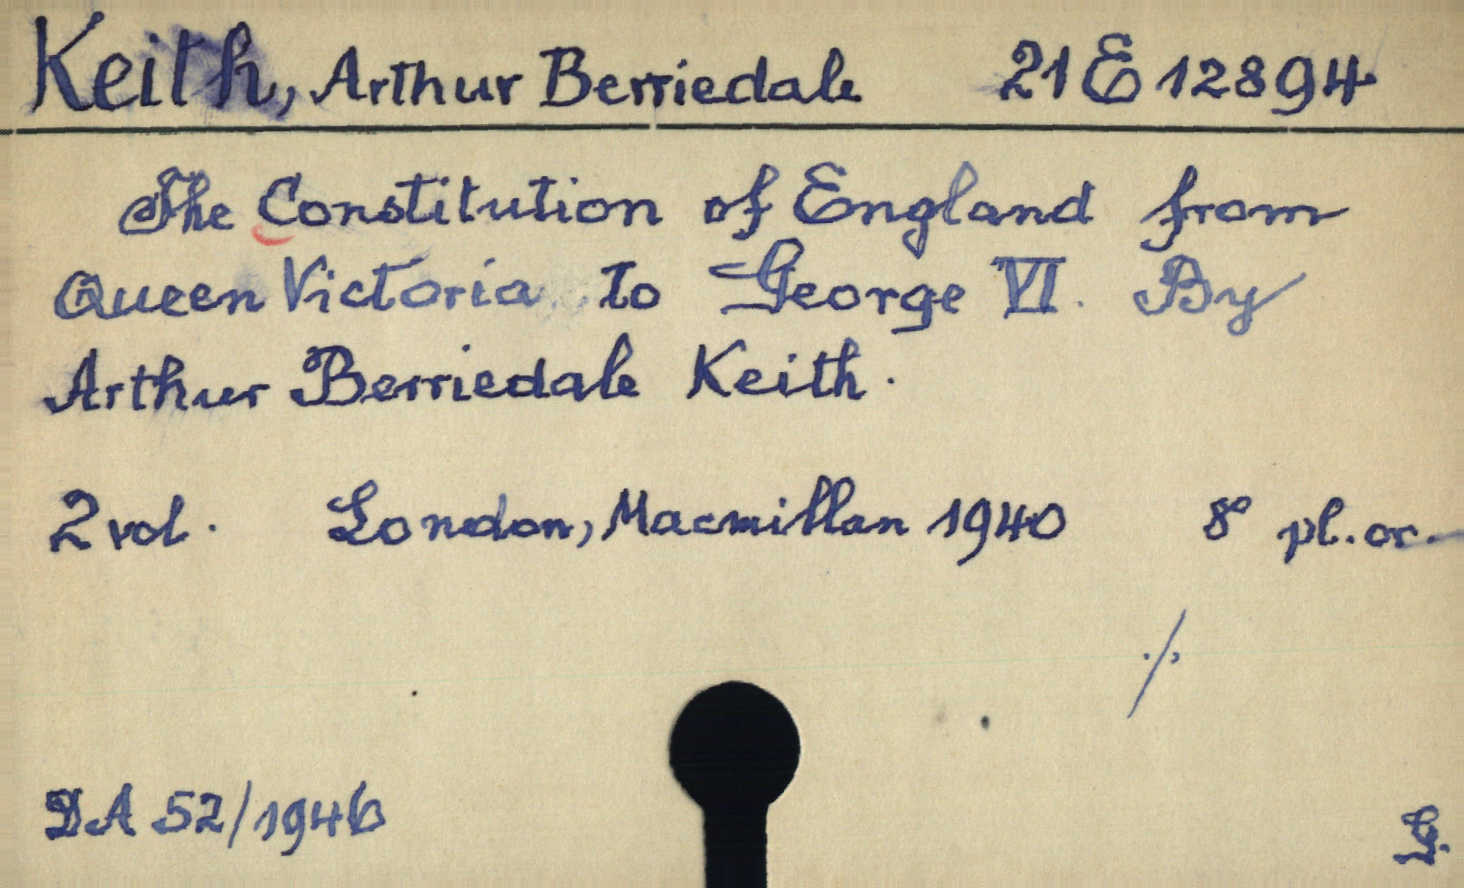 Keith, Arthur Berriedale 21 E 12894
The Constitution of England from
Queen Victoria to George VI. By
Arthur Berriedale Keith.
2 vol. London, Macmillan 1940 8° pl. or.
./.
DA 52/1946
G.